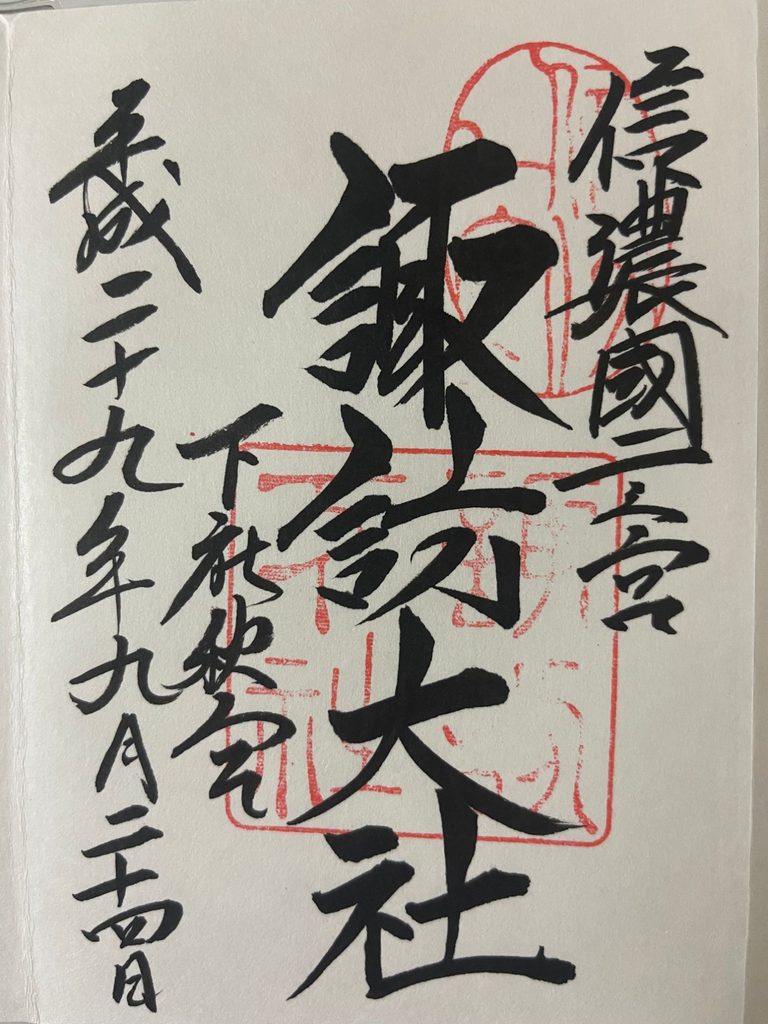 信濃國一之宮
諏訪大社
下社秋宮
平成二十九年九月二十四日